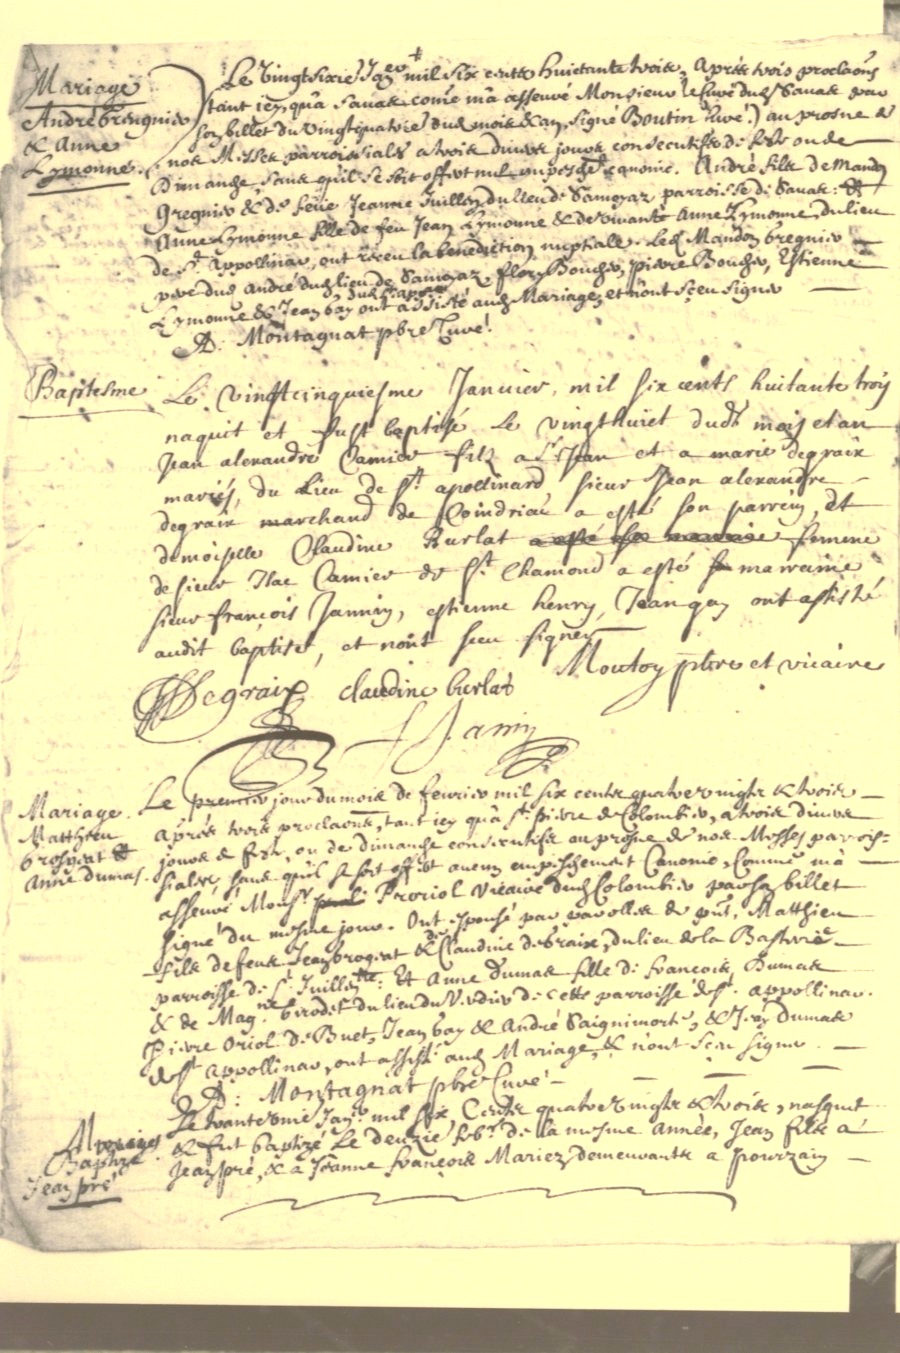 Mariage
André bregnier
& Anne
Lymonne.
Le vingtsixie Janer mil six cents huictante trois, après trois proclaõns
tant icy qu'a Savas come m'a asseuré Monsieur le Curé dud Savas par
son billet du vingtquatrie dud mois & an, signé Boutin Curé) au prosne de
nos Messes parroissiales a trois divers jours consecutifs de feste ou de
Dimanche, sans qu'il se soit offert nul empesche canonic. André fils de Mandon
Gregnier & de feue Jeanne Juillen du lieu de Samoyaz parroisse de Savas: &
Anne Lymonne fille de feu Jean Lymonne & de vivante Anne Lymonne, du lieu
de St Appollinar, ont receu la benediction nuptiale. Led Mandon bregnier
pere dud André dud lieu de Samoyaz, flory Boucher, pierre Boucher, Estienne
Lymonne & Jean bay ont assisté aud Mariage, et n'ont sceu signer
A: Montagnat pbre Curé.
Baptesme
Le vingtcinquiesme Janvier, mil six cents huitante trois
naquit et fust baptisé le vingthuict dudt mois et an
Jean alexandre Camier filz a Sr Jean et a marie degraix
mariés, du Lieu de St apollinard sieur Jean alexandre
degraix marchand de Coindrieu a esté son parrein, et
demoiselle Claudine Burlat a esté sa marreine femme
de sieur Isac Camier de St Chamond a esté sa marreine
sieur françois Jannin, estienne henry, Jean gay ont assisté
audit baptise, et n'ont sceu signer
Moutoy pbre et vicaire
Degraix claudine burlat
Janin
Mariage
Matthieu
brogniat &
Anne dumas.
Le premier jour du mois de fevrier mil six cents quatre vingts & trois
Après trois proclaõns, tant icy qu'à St pierre de Colombier, a trois divers
jours de feste, ou de dimanche consecutifs au prosne de nos Messes parrois=
siales, sans qu'il se soit offert aucun empeschement Canonic, Comme m'a
asseuré Monsr Proriol Vicaire dud Colombier par son billet
signé du mesme jour. Ont espousé par parolles de pnt, Matthieu
fils de feus Jean brogniat & de Claudine debraix, du lieu de la Bastrie
parroisse de St Juillen: Et Anne Dumas fille de francois Dumas
& de Magne birodet du lieu du Verdier de cette parroisse de St appollinar.
Pierre Oriol de Buet, Jean bay & André Saignimorte, & Jean Dumas
de St Appollinar, ont assisté aud Mariage, & n'ont sceu signer.
A: Montagnat pbre Curé
Baptize
Jean pré
Le trantunie Janr mil six Cents quatre vingts & trois, nasquit
& fut baptizé Le deuxie febr de la mesme année, Jean fils a
Jean pré, & a Jeanne françois Mariez demeurants a pourzain